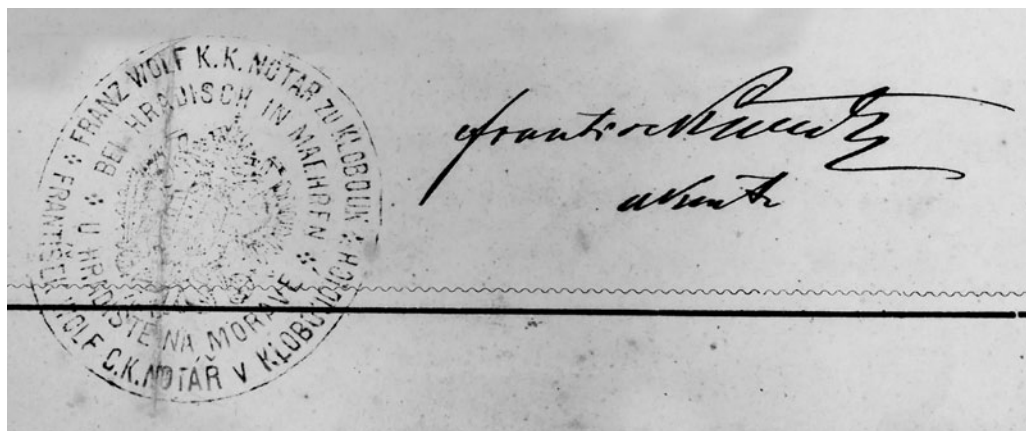 FRANZ WOLF K.K. NOTAR ZU KLOBOUK
BEI HRADISCH IN MAEHREN
FRANTIŠEK WOLF C.K. NOTÁŘ V KLOBOUKÁCH
U HRADIŠTĚ NA MORAVĚ
František